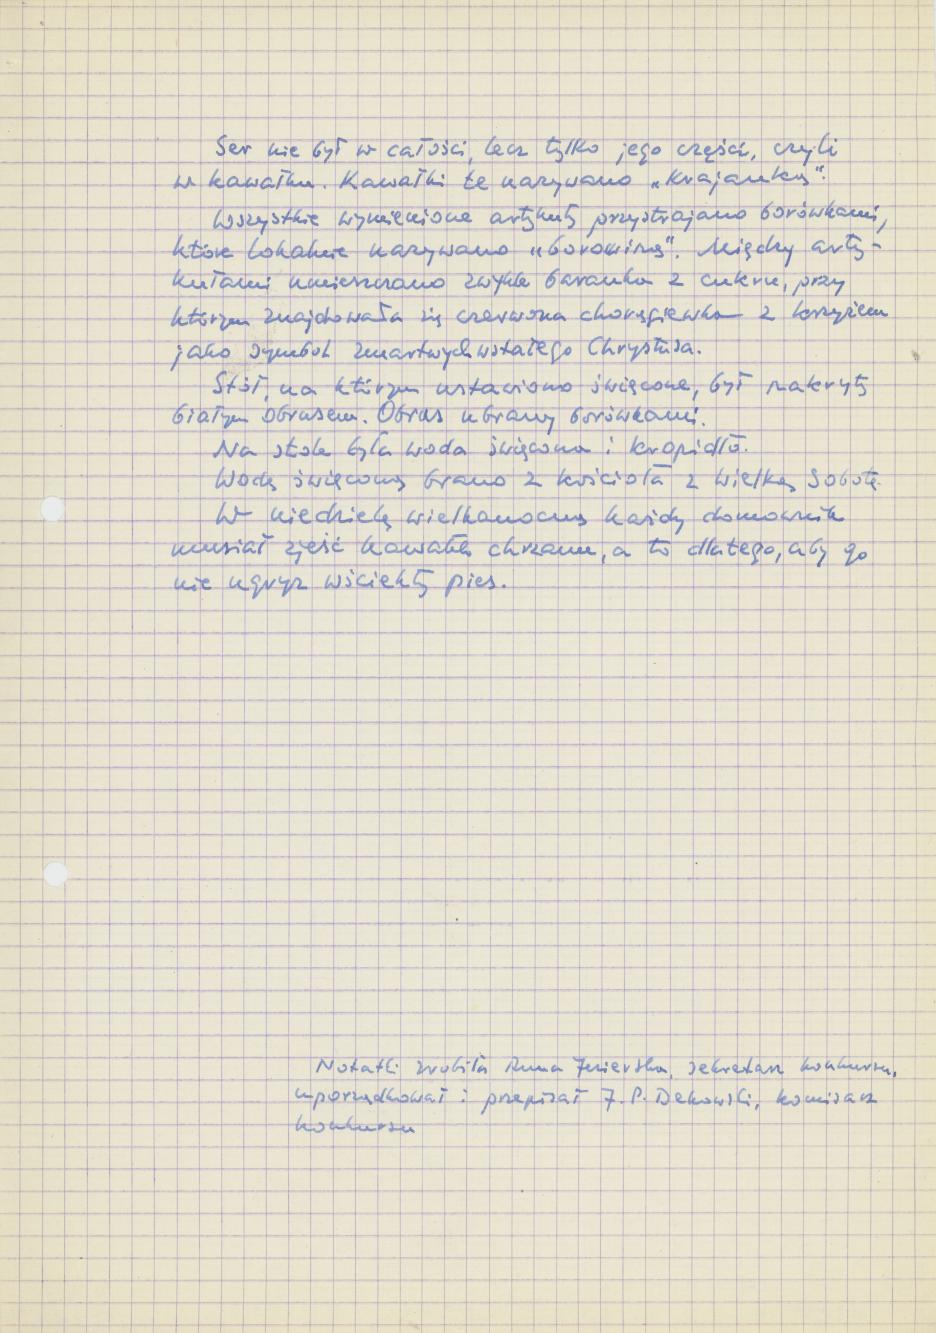 Ser nie był w całości, lecz tylko jego części, czyli
w kawałku. Kawałki te nazywano „Krajanką".
Wszystkie wymienione artykuły przystrajano borówkami,
które lokalnie nazywano „borowiną". Między arty-
kułami umieszczano zwykle baranka z cukru, przy
którym znajdowała się czerwona chorągiewka z krzyżem
jako symbol zmartwychwstałego Chrystusa.
Stół, na którym ustawiono święcone, był nakryty
białym obrusem. Obrus ubrany borówkami.
Na stole była woda święcona i kropidło.
Wodę święconą brano z kościoła z Wielką Sobotę.
W niedzielę wielkanocną każdy domownik
musiał zjeść kawałek chrzanu, a to dlatego, aby go
nie ugryzł wściekły pies.
Notatki zrobiła Anna Jezierska, sekretarz konkursu,
uporządkował i przepisał J. P. Dekowski, komisarz
konkursu